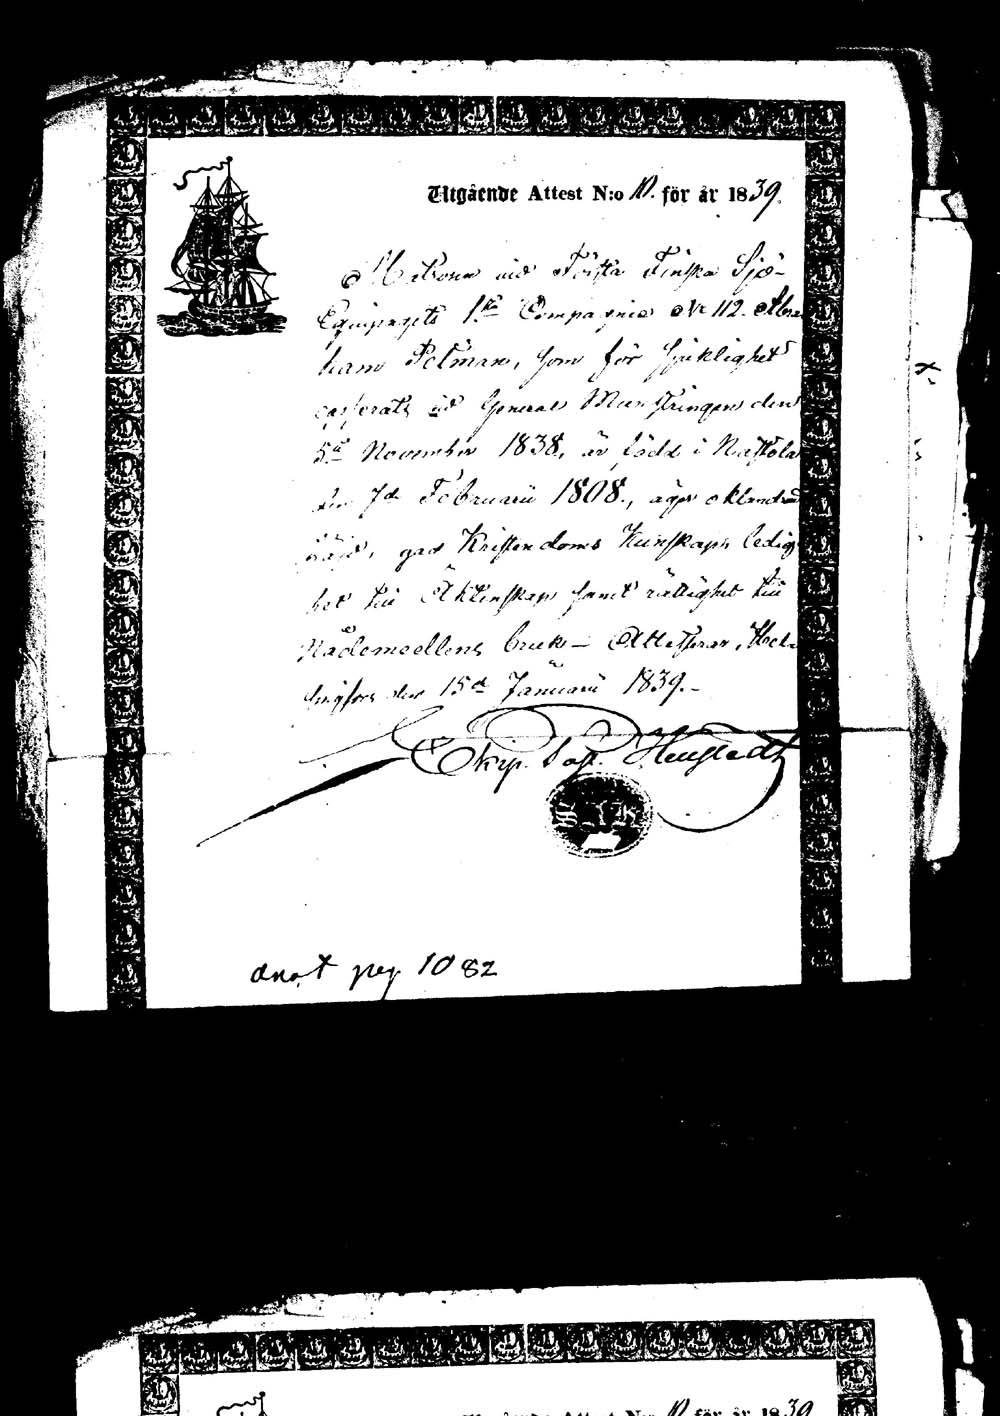 Utgående Attest N:o 10. för år 1839.
Matrosen vid Första Finska Sjö-
Equipagets 1sta Compagnie No 112. Abra
ham Polman, som för sjuklighet
casserats vid General Mönstringen den
5te November 1838, är född i Nastola
den 7de Februarii 1808., äger oklandrad
fräjd, god Kristendoms Kunskap, ledig
het till Äktenskap samt rättighet till
Nådemedlens bruk – Attesterar, Hel-
singfors den 15de Januarii 1839.–
Ekip. Past.
S. J. K.
anot pag 1082
Attest N:o 10 för år 1839